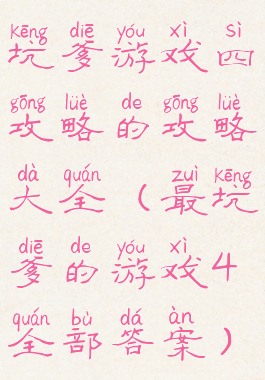 kēng diē yóu xì sì
坑爹游戏四
gōng lüè de gōng lüè
攻略的攻略
dà quán zuì kēng
大全(最坑
diē de yóu xì
爹的游戏4
quán bù dá àn
全部答案)